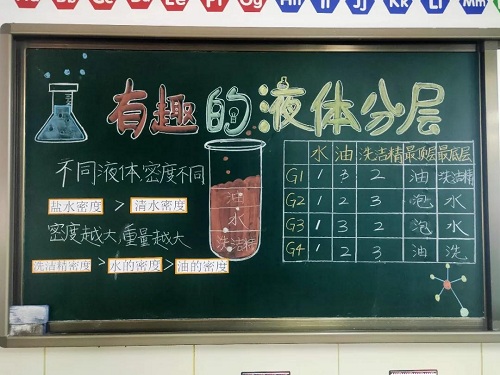 Ff Gg Hh Ii Jj Kk Ll Mm
有趣的液体分层
不同液体密度不同
盐水密度 > 清水密度
密度越大,重量越大
洗洁精密度 > 水的密度 > 油的密度
油
水
洗洁精
水 油 洗洁精 最顶层 最底层
G1 1 3 2 油 洗洁精
G2 1 2 3 泡 水
G3 1 3 2 泡 水
G4 1 2 3 油 洗